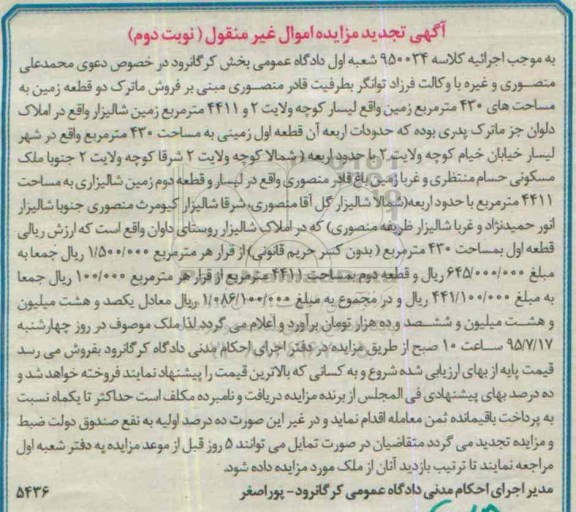 آگهی تجدید مزایده اموال غیر منقول ( نوبت دوم)
به موجب اجرائیه کلاسه ۹۵۰۰۳۴ شعبه اول دادگاه عمومی بخش کرگانرود در خصوص دعوی محمدعلی
منصوری و غیره با وکالت فرزاد توانگر بطرفیت قادر منصوری مبنی بر فروش ماترک دو قطعه زمین به
مساحت های ۴۳۰ مترمربع زمین واقع لیسار کوچه ولایت ۲ و ۴۴۱۱ مترمربع زمین شالیزار واقع در املاک
دلوان جز ماترک پدری بوده که حدودات اربعه آن قطعه اول زمینی به مساحت ۴۳۰ مترمربع واقع در شهر
لیسار خیابان خیام کوچه ولایت ۲ با حدود اربعه ( شمالا کوچه ولایت ۲ شرقا کوچه ولایت ۲ جنوبا ملک
مسکونی حسام منتظری و غربا زمین باغ قادر منصوری واقع در لیسار و قطعه دوم زمین شالیزاری به مساحت
۴۴۱۱ مترمربع با حدود اربعه(شمالاً شالیزار گل آقا منصوری، شرقا شالیزار کیومرث منصوری جنوبا شالیزار
انور حمیدنژاد و غربا شالیزار ظریفه منصوری) که در املاک شالیزار روستای داوان واقع است که ارزش ریالی
قطعه اول بمساحت ۴۳۰ مترمربع ( بدون کسر حریم قانونی) از قرار هر مترمربع ۱/۵۰۰/۰۰۰ ریال جمعا به
مبلغ ۶۴۵/۰۰۰/۰۰۰ ریال و قطعه دوم بمساحت ۴۴۱۱ مترمربع از قرار هر مترمربع ۱۰۰/۰۰۰ ریال جمعا
به مبلغ ۴۴۱/۱۰۰/۰۰۰ ریال و در مجموع به مبلغ ۱/۰۸۶/۱۰۰/۰۰۰ ریال معادل یکصد و هشت میلیون
و هشت میلیون و ششصد و ده هزار تومان برآورد و اعلام می گردد لذا ملک موصوف در روز چهارشنبه
۹۵/۷/۱۷ ساعت ۱۰ صبح از طریق مزایده در دفتر اجرای احکام مدنی دادگاه کرگانرود بفروش می رسد
قیمت پایه از بهای ارزیابی شده شروع و به کسانی که بالاترین قیمت را پیشنهاد نمایند فروخته خواهد شد و
ده درصد بهای پیشنهادی فی المجلس از برنده مزایده دریافت و نامبرده مکلف است حداکثر تا یکماه نسبت
به پرداخت باقیمانده ثمن معامله اقدام نماید و در غیر این صورت ده درصد اولیه به نفع صندوق دولت ضبط
و مزایده تجدید می گردد متقاضیان در صورت تمایل می توانند ۵ روز قبل از موعد مزایده به دفتر شعبه اول
مراجعه نمایند تا ترتیب بازدید آنان از ملک مورد مزایده داده شود.
مدیر اجرای احکام مدنی دادگاه عمومی کرگانرود- پوراصغر ۵۴۳۶